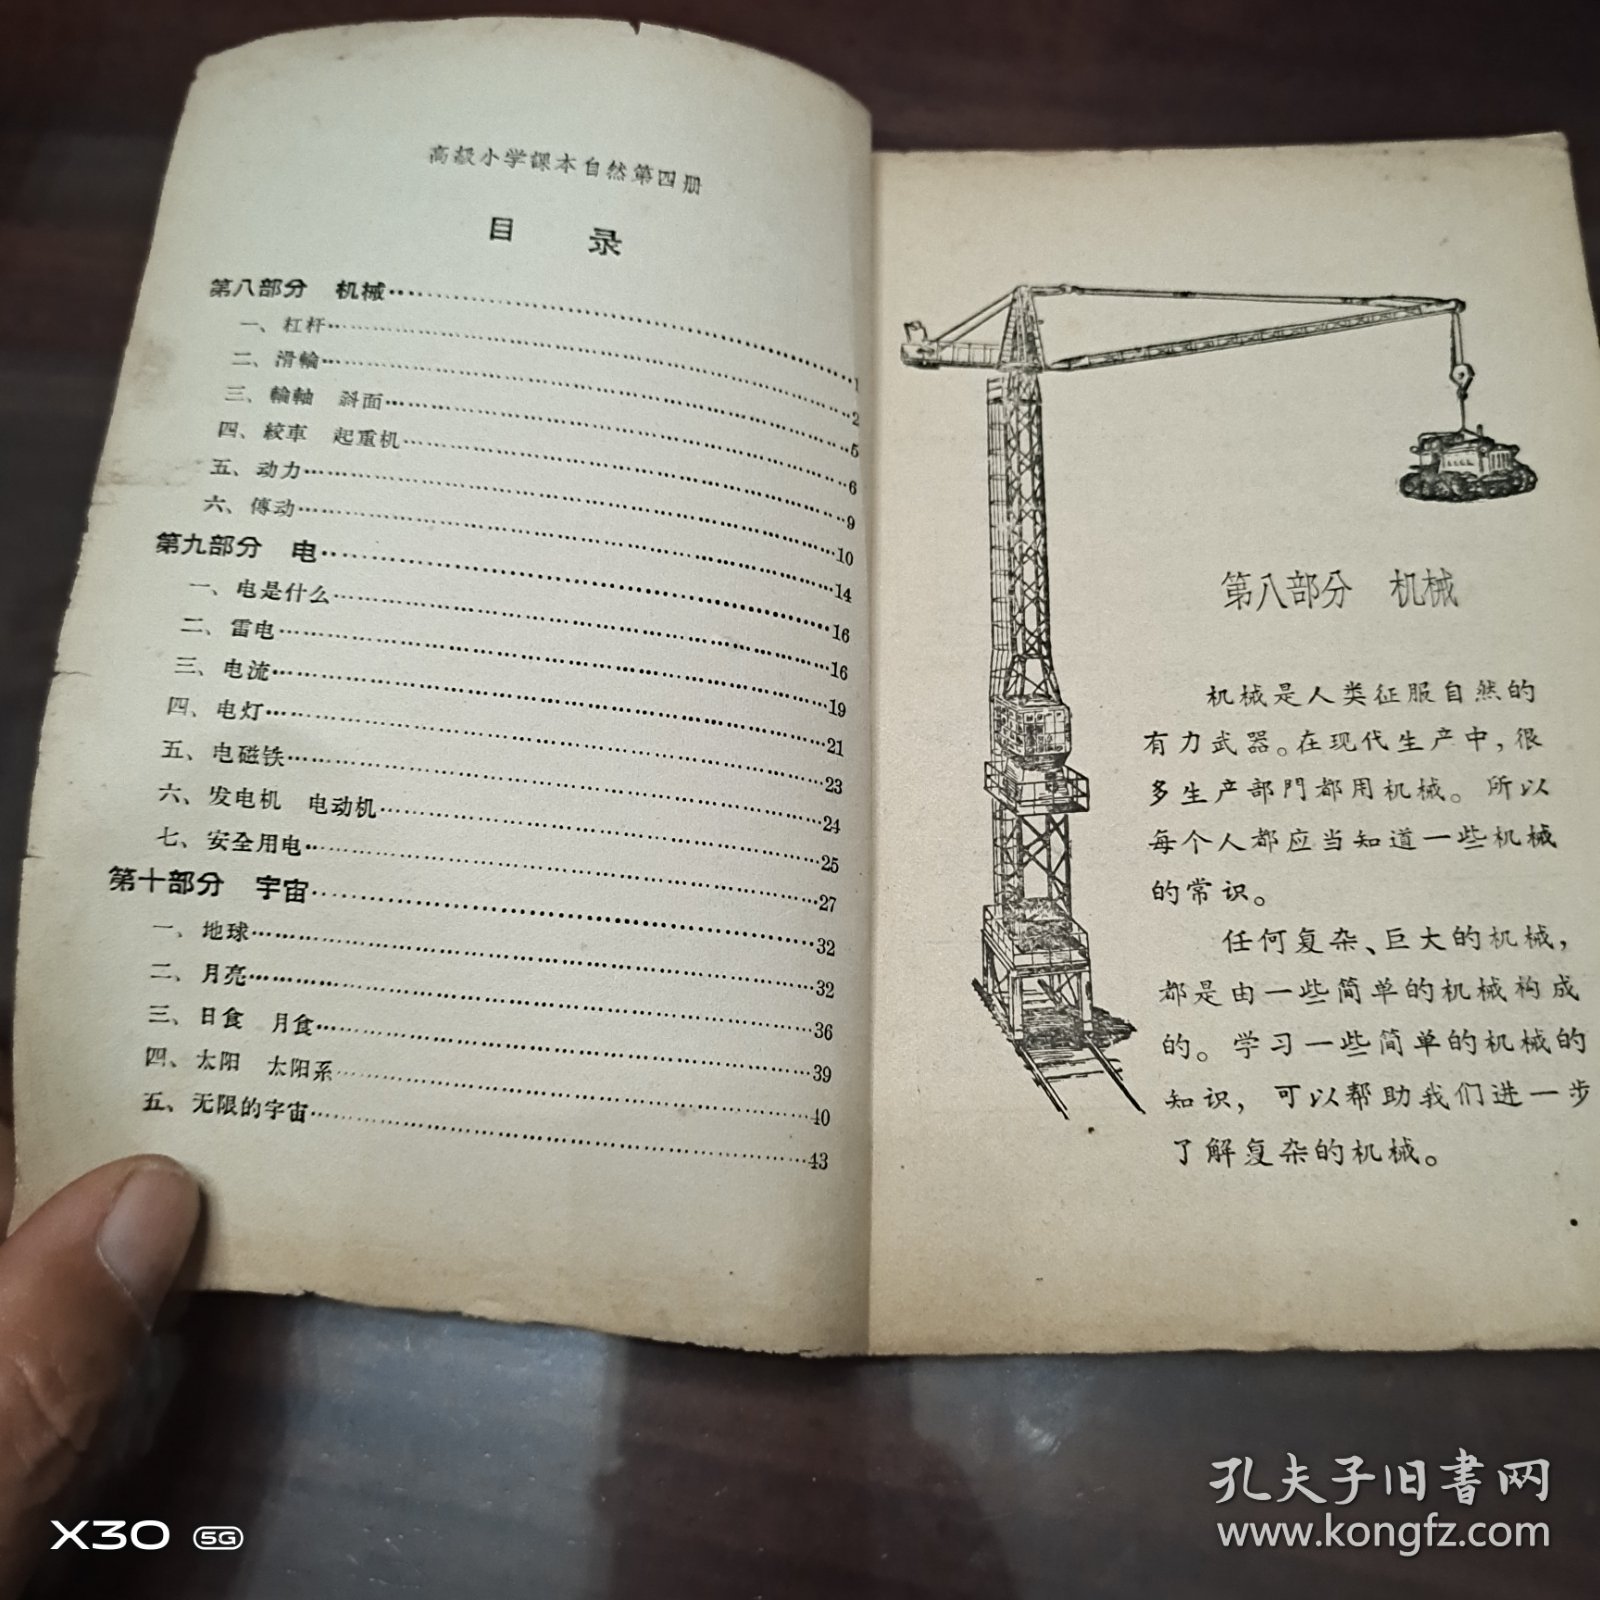 高级小学課本自然第四册
目 录
第八部分 机械……1
一、杠杆……2
二、滑輪……5
三、輪軸 斜面……6
四、絞車 起重机……9
五、动力……10
六、傳动……14
第九部分 电……16
一、电是什么……16
二、雷电……19
三、电流……21
四、电灯……23
五、电磁铁……24
六、发电机 电动机……25
七、安全用电……27
第十部分 宇宙……32
一、地球……32
二、月亮……36
三、日食 月食……39
四、太阳 太阳系……40
五、无限的宇宙……43
第八部分 机械
机械是人类征服自然的
有力武器。在现代生产中，很
多生产部門都用机械。所以
每个人都应当知道一些机械
的常识。
任何复杂、巨大的机械，
都是由一些简单的机械构成
的。学习一些简单的机械的
知识，可以帮助我们进一步
了解复杂的机械。
孔夫子旧書网
www.kongfz.com
X30 5G